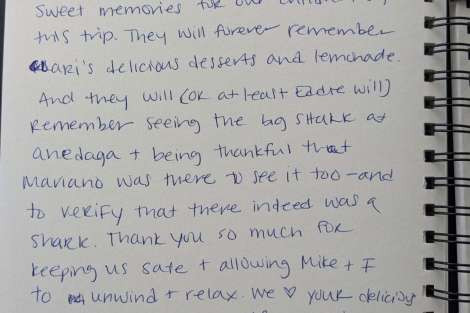 Sweet memories for our
this trip. They will forever remember
Mari's delicious desserts and lemonade.
And they will (or at least Eddie will)
Remember seeing the big shark at
anedaga + being thankful that
Mariano was there to see it too - and
to verify that there indeed was a
shark. Thank you so much for
keeping us safe + allowing Mike + I
to unwind + relax. We ♡ your